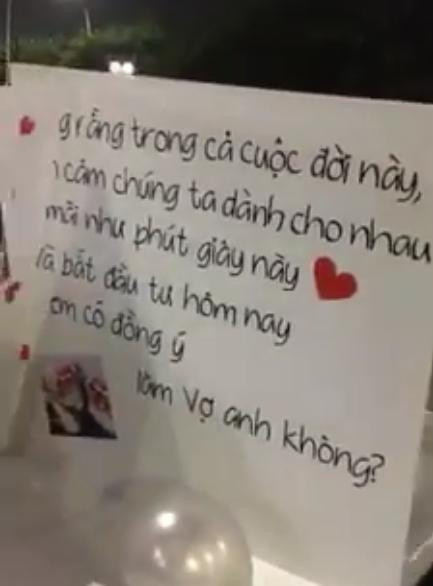 g rằng trong cả cuộc đời này,
cảm chúng ta dành cho nhau
mãi như phút giây này
là bắt đầu từ hôm nay
em có đồng ý
làm Vợ anh không?